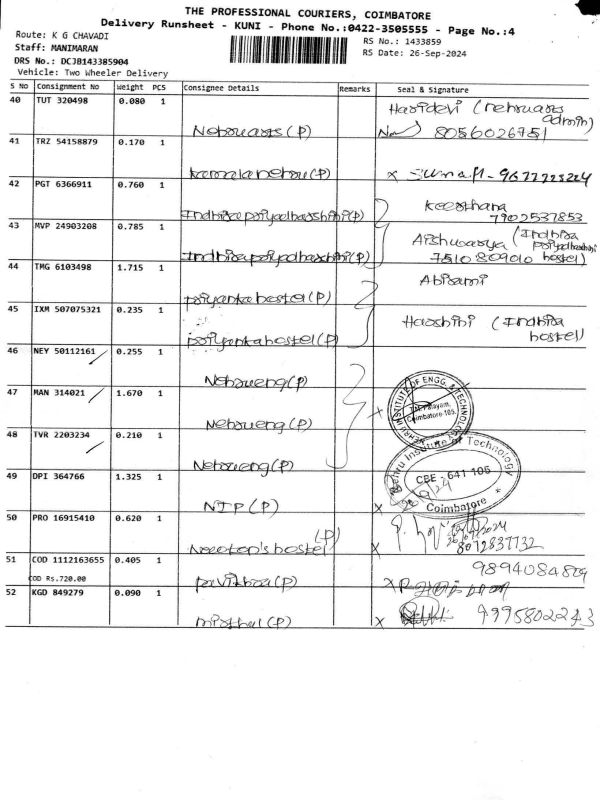 THE PROFESSIONAL COURIERS, COIMBATORE
Delivery Runsheet - KUNI - Phone No.:0422-3505555 - Page No.:4
Route: K G CHAVADI
RS No. : 1433859
Staff: MANIMARAN
RS Date: 26-Sep-2024
DRS No.: DCJB143385904
Vehicle: Two Wheeler Delivery
S No Consignment No Weight PCS Consignee Details Remarks Seal & Signature
40 TUT 320498 0.080 1 Nehruarts (P) Haridevi (nehruarts admin) 8056026751
41 TRZ 54158879 0.170 1 kamalanehru (P) x
42 PGT 6366911 0.760 1 Indhirapriyadharshini (P) Keerthana 7902537853
43 MVP 24903208 0.785 1 Indhirapriyadharshini (P) Aishwarya (Indhira priyadharshini hostel) 7510809010
44 TMG 6103498 1.715 1 priyanka hostel (P) Abirami
45 IXM 507075321 0.235 1 priyanka hostel (P) Harshini (Indhira hostel)
46 NEY 50112161 0.255 1 Nehrueng (P)
47 MAN 314021 1.670 1 Nehrueng (P) x
NEHRU INSTITUTE OF ENGG. & TECHNOLOGY
T.M. Palayam, Coimbatore-105.
48 TVR 2203234 0.210 1 Nehrueng (P)
Nehru Institute of Technology
CBE - 641 105
Coimbatore
49 DPI 364766 1.325 1 NIP (P) x
50 PRO 16915410 0.620 1 hostel (P) x 8072837732
51 COD 1112163655 0.405 1 pavithra (P) x
COD Rs.720.00
52 KGD 849279 0.090 1 (P) x 9995802243